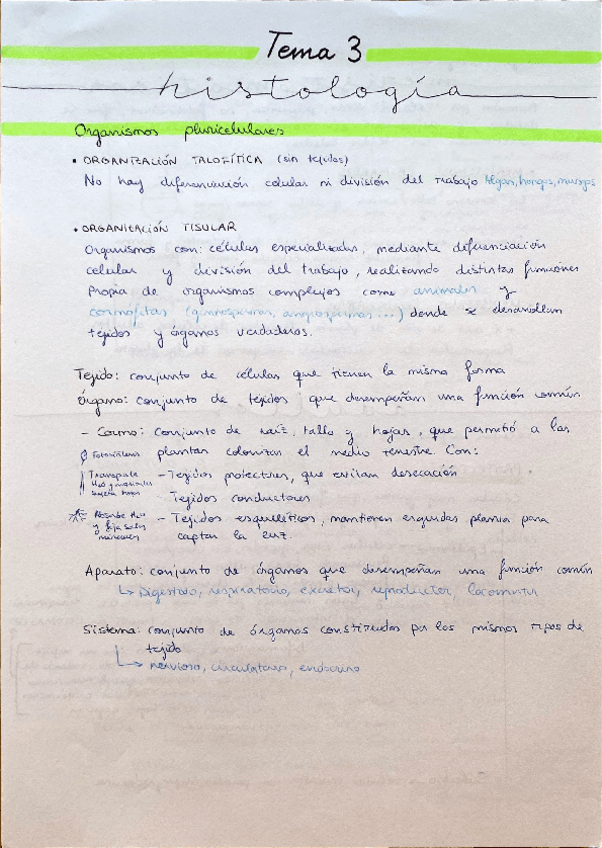 Tema 3
histología
Organismos pluricelulares
• ORGANIZACIÓN TALOFÍTICA (sin tejidos)
No hay diferenciación celular ni división del trabajo Algas, hongos, musgos
• ORGANIZACIÓN TISULAR
Organismos con: células especializadas, mediante diferenciación
celular y división del trabajo, realizando distintas funciones
Propia de organismos complejos como animales y
cormofitas (gimnospermas, angiospermas ...) donde se desarrollan
tejidos y órganos verdaderos.
Tejido: conjunto de células que tienen la misma forma
órgano: conjunto de tejidos que desempeñan una función común
- Cormo: conjunto de raíz, tallo y hojas, que permitió a las
plantas colonizar el medio terrestre. Con:
Fotosíntesis
Transporte
H2O y minerales
Sujeta hojas
- Tejidos protectores, que evitan desecación
- Tejidos conductores
Absorbe H2O
y fija sales
minerales
- Tejidos esqueléticos, mantienen erguidas planta para
captar la luz.
Aparato: conjunto de órganos que desempeñan una función común
↳ Digestivo, respiratorio, excretor, reproductor, locomotor
Sistema: conjunto de órganos constituidos por los mismos tipos de
tejido
↳ nervioso, circulatorio, endocrino